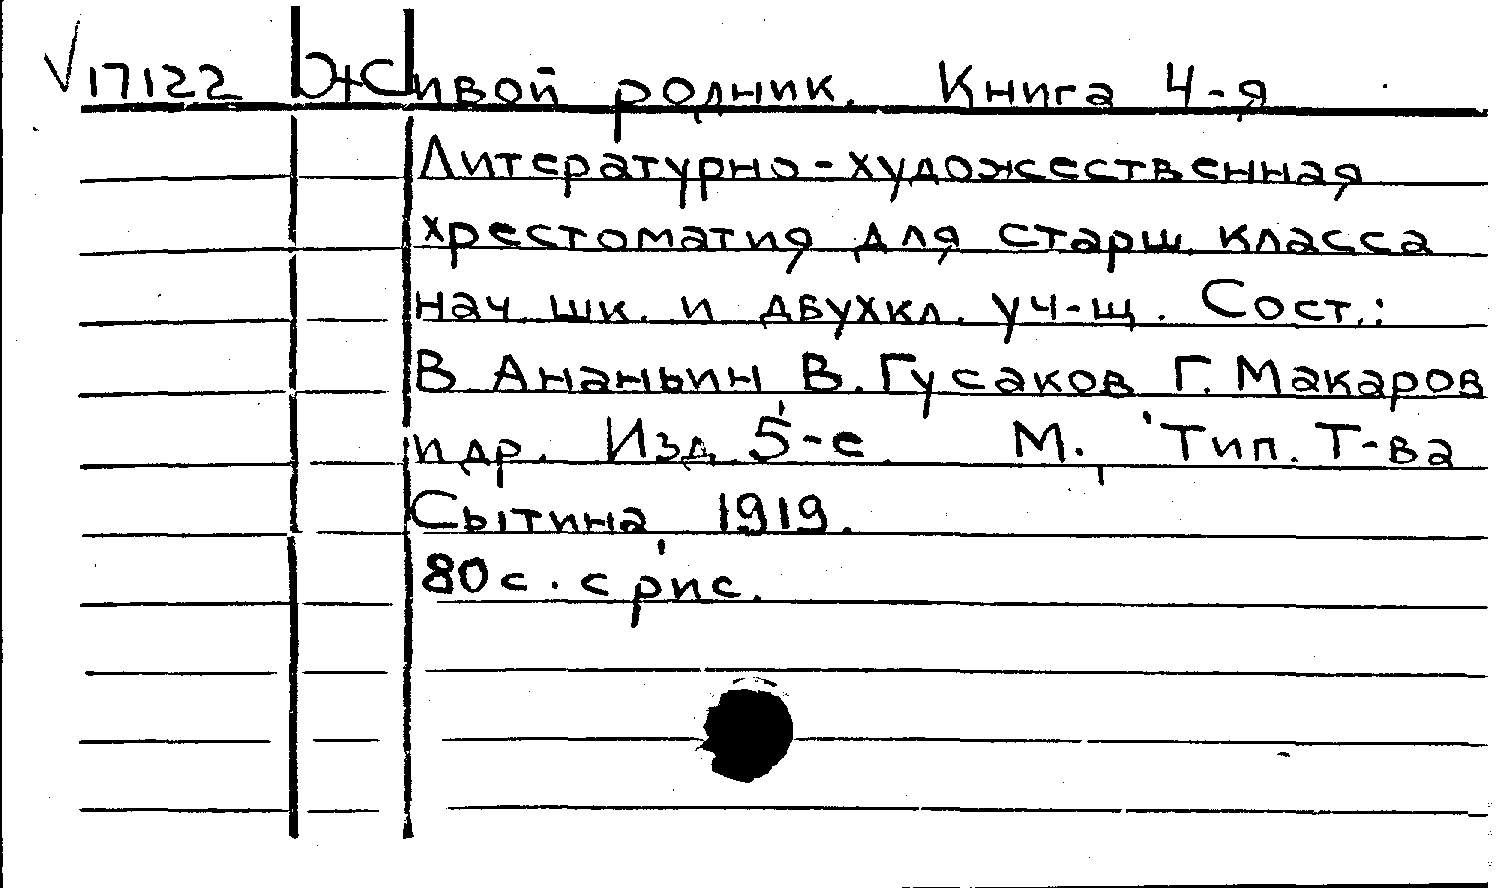 √17122 Живой родник. Книга 4-я
Литературно-художественная
хрестоматия для старш. класса
нач. шк. и двухкл. уч-щ. Сост.:
В. Ананьин В. Гусаков Г. Макаров
и др. Изд. 5-е М., Тип. Т-ва
Сытина, 1919.
80 с. с рис.